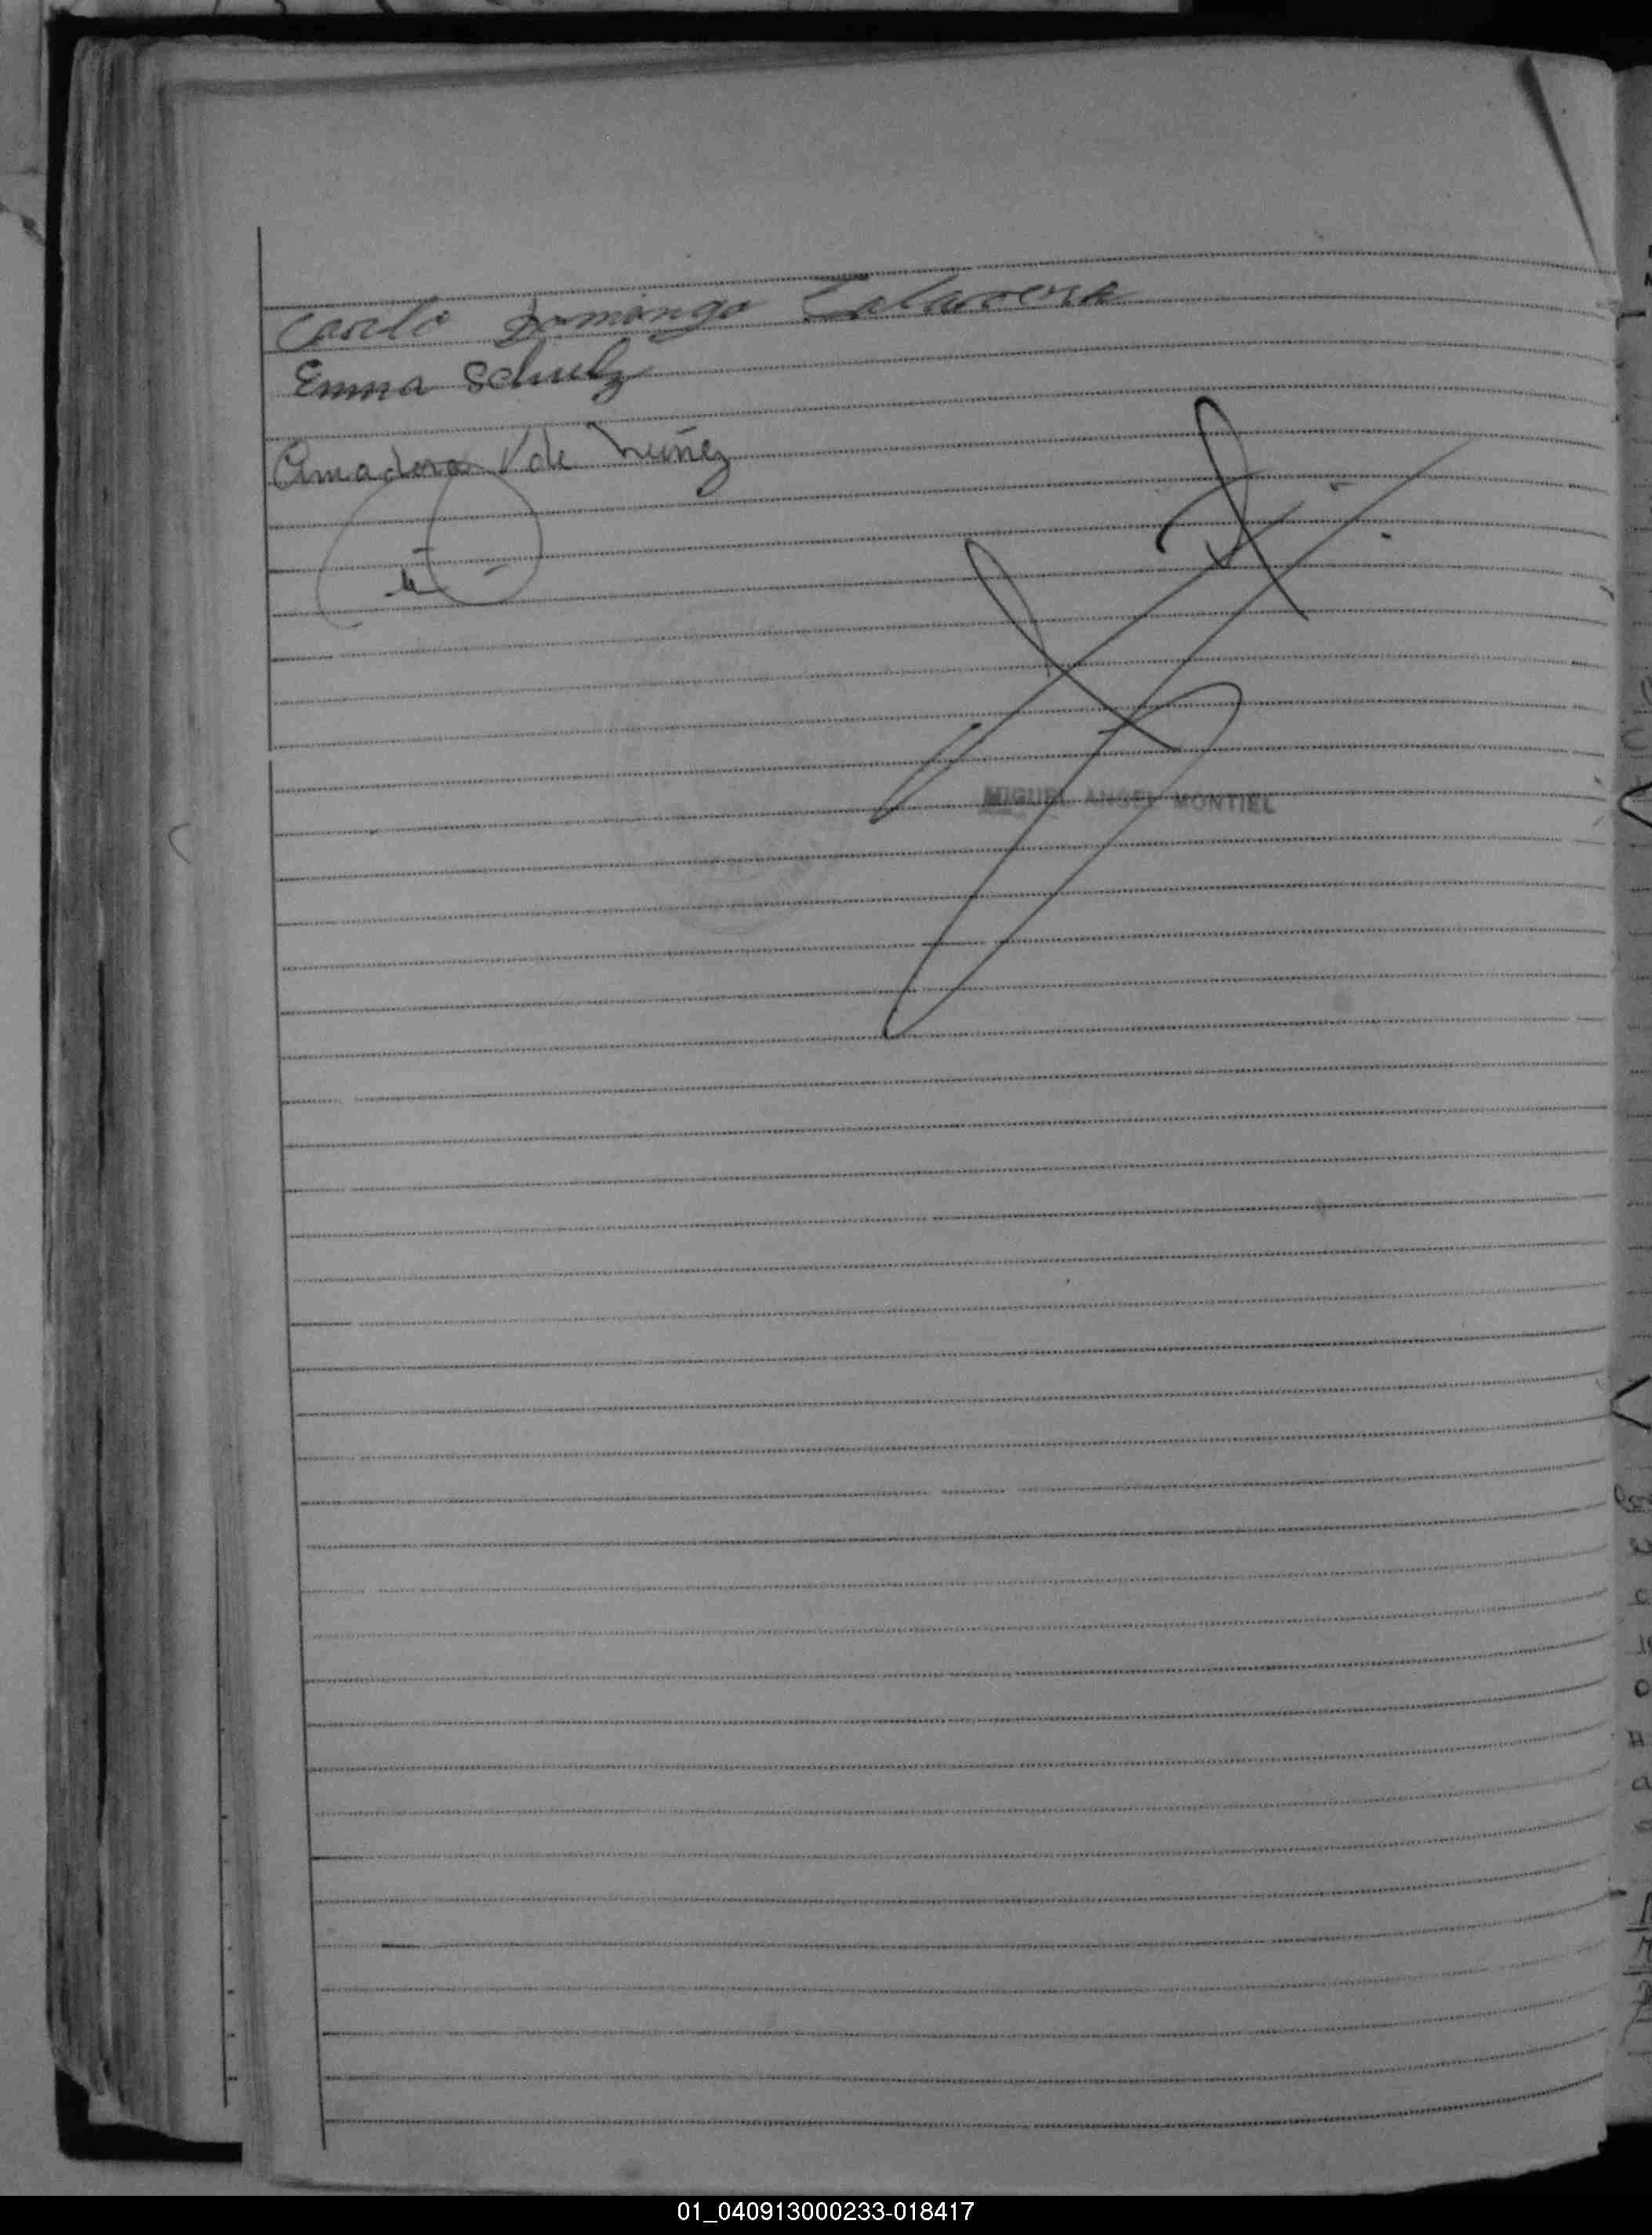 Carlo Domingo Talavera
Emma Schulz
Amadora V de Núñez
MIGUEL ANGEL MONTIEL
01_040913000233-018417